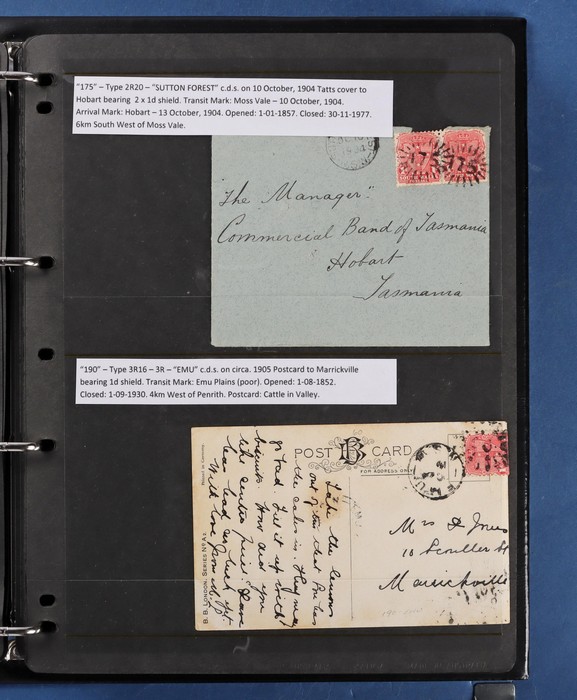 "175" – Type 2R20 – "SUTTON FOREST" c.d.s. on 10 October, 1904 Tatts cover to
Hobart bearing 2 x 1d shield. Transit Mark: Moss Vale – 10 October, 1904.
Arrival Mark: Hobart – 13 October, 1904. Opened: 1-01-1857. Closed: 30-11-1977.
6km South West of Moss Vale.
175 175
"The Manager"
Commercial Band of Tasmania
Hobart
Tasmania
"190" – Type 3R16 – 3R – "EMU" c.d.s. on circa. 1905 Postcard to Marrickville
bearing 1d shield. Transit Mark: Emu Plains (poor). Opened: 1-08-1852.
Closed: 1-09-1930. 4km West of Penrith. Postcard: Cattle in Valley.
POST CARD
FOR ADDRESS ONLY
Take the lemons
out of the
the cakes is. They may
go bad. Put it up with
biscuits. How are you
With love from
B. B. LONDON. SERIES No
Mrs Jones
10
Marrickville